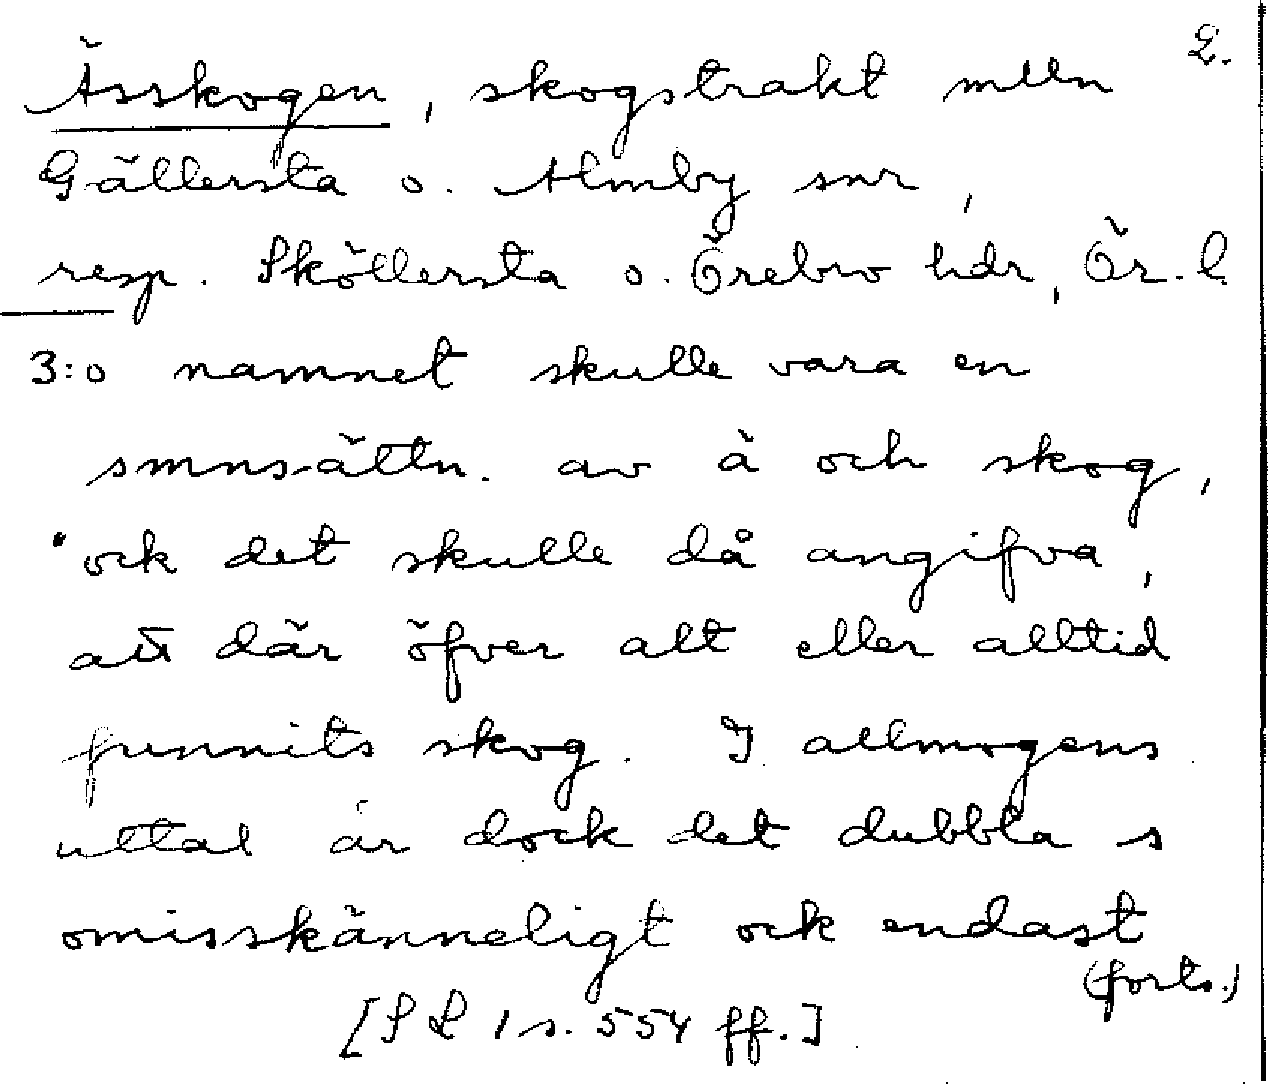 2.
Ässkogen, skogstrakt mlln
Gällersta o. Almby snr,
resp. Sköllersta o. Örebro hdr, Ör. l.
3:o namnet skulle vara en
smnsättn. av ä och skog,
ock det skulle då angifva,
att där öfver alt eller alltid
funnits skog. I allmogens
uttal är dock det dubbla s
omisskänneligt ock endast
(forts.)
[SL 1 s. 554 ff.]